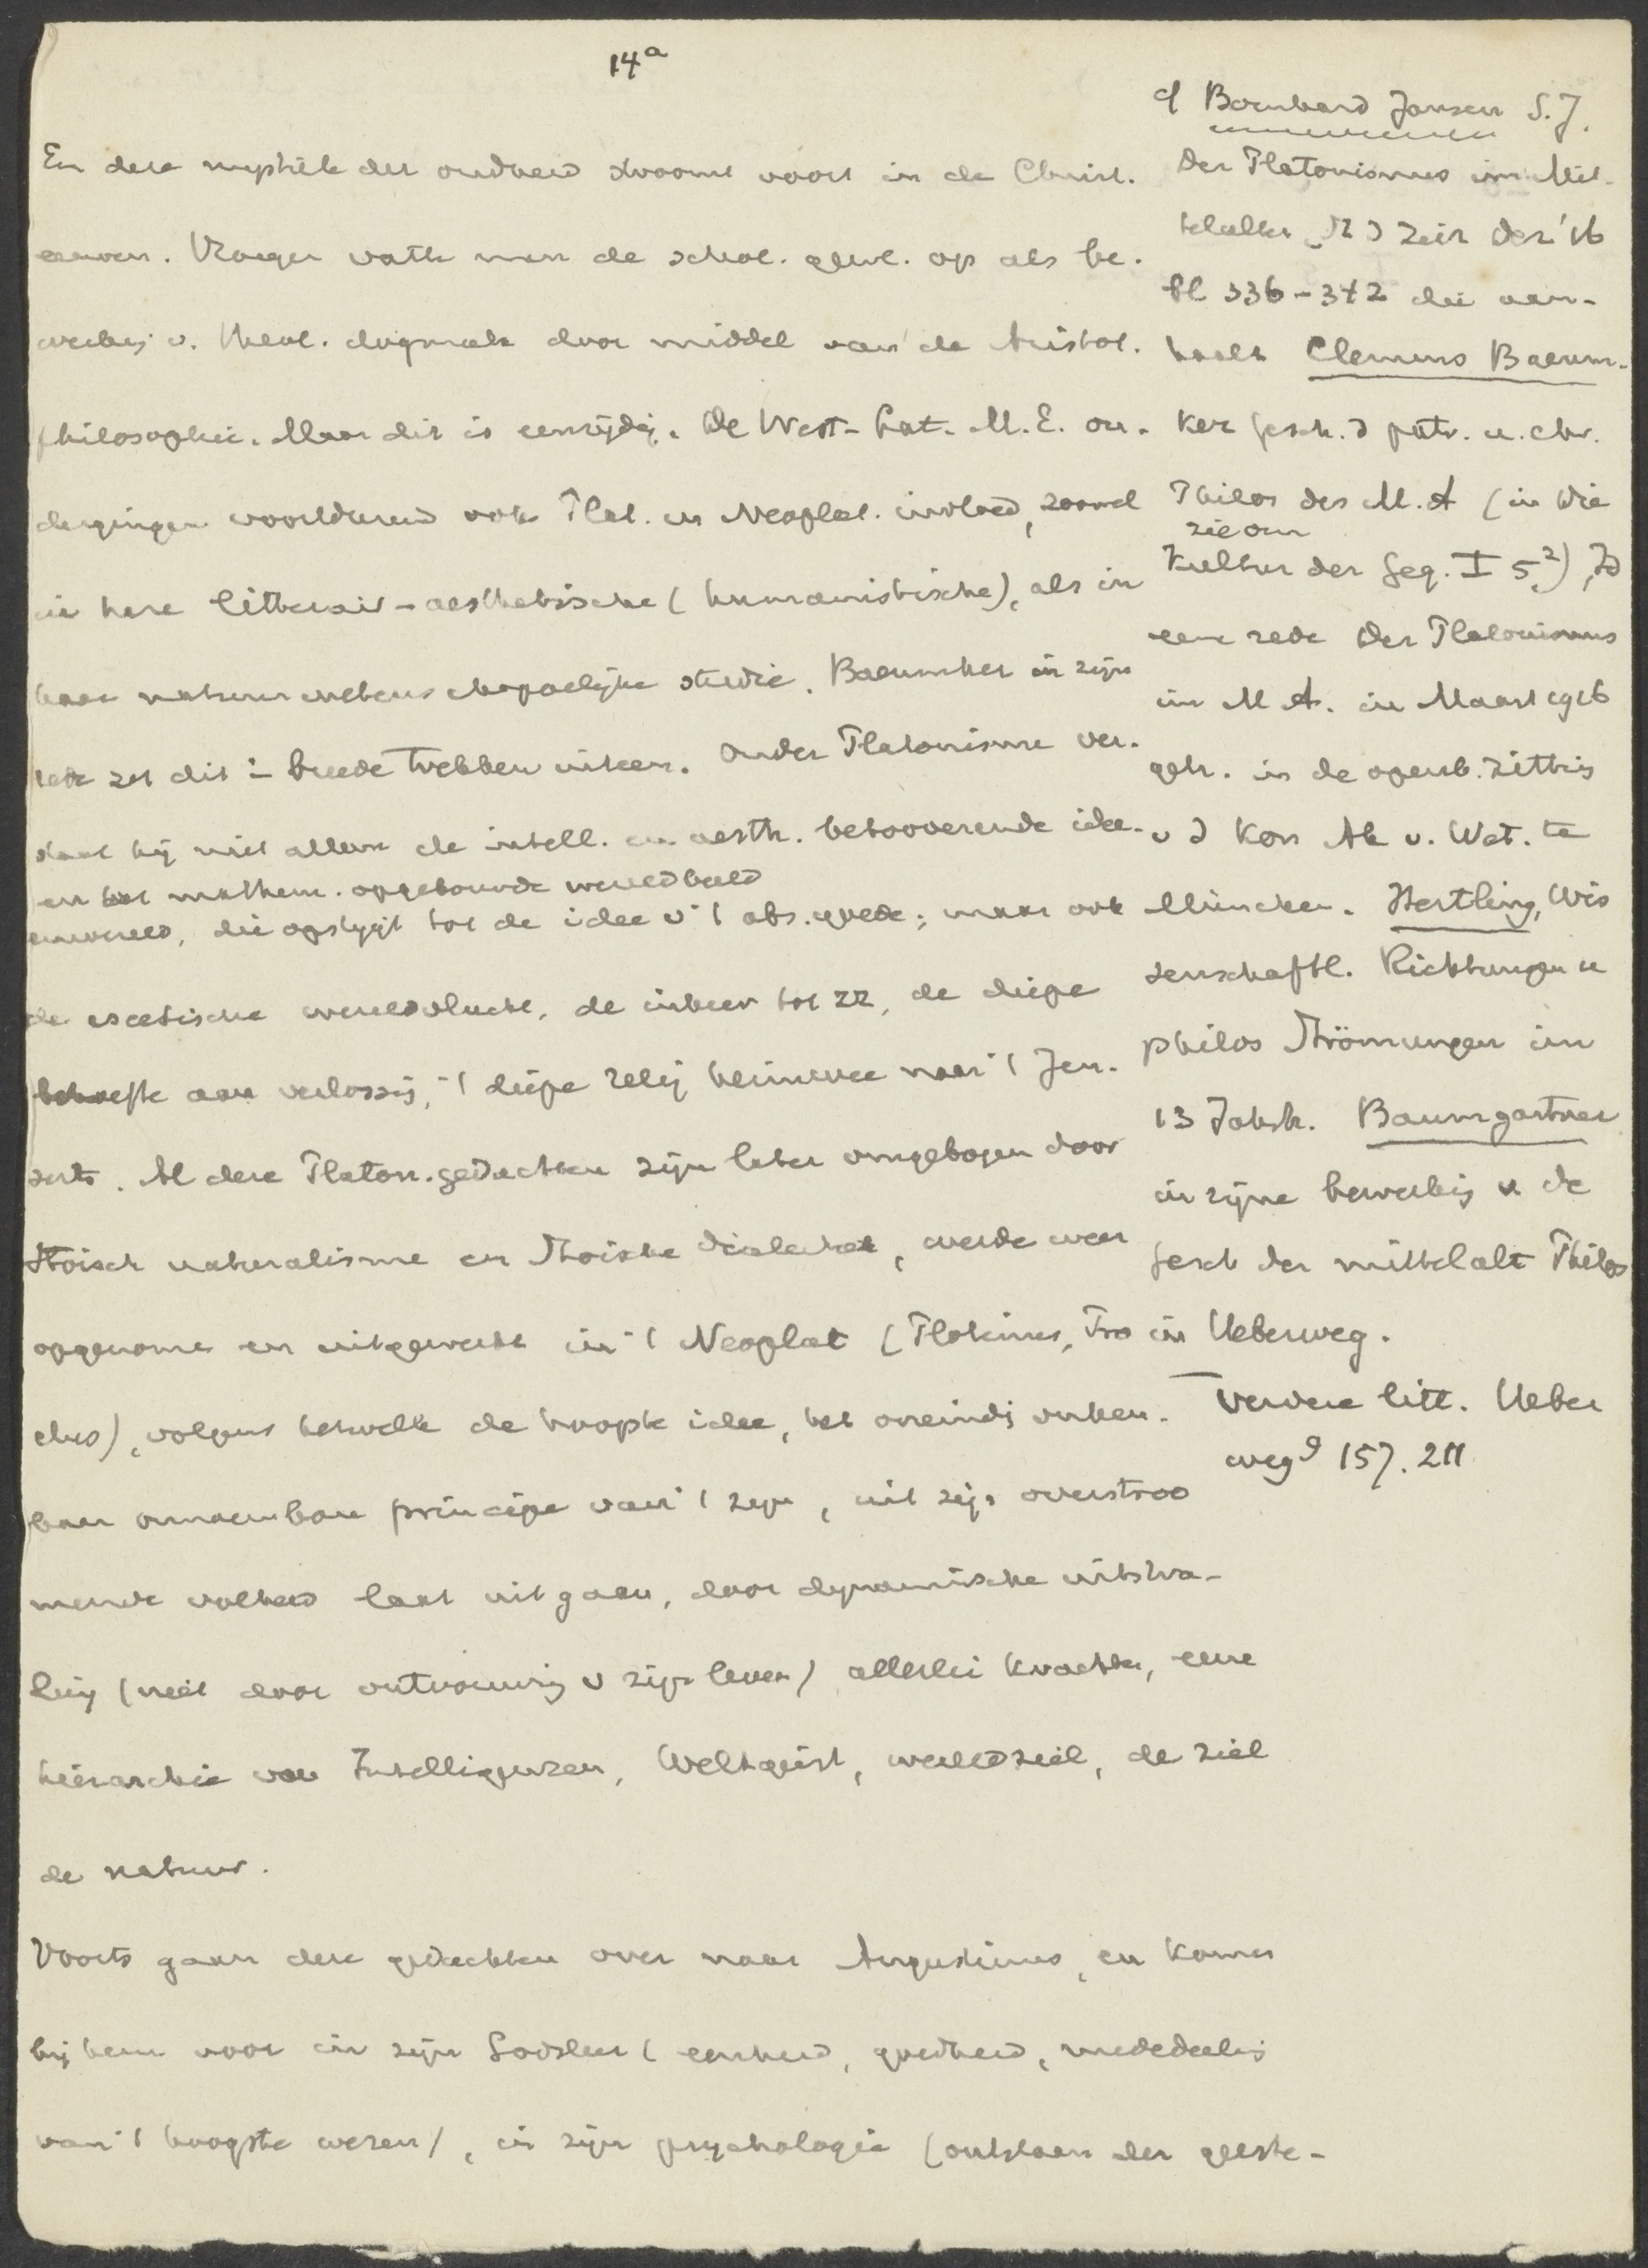 14a
En deze mystiek der oudheid stroomt voort in de Christ.
eeuwen. Vroeger vatte men de schol. gewl. op als be-
werking v. theol. dogmata door middel van de Aristot.
philosophie. Maar dit is eenzijdig. De West-Lat. M.E. on-
dergingen voortdurend ook Plat. en Neoplat. invloed, zoowel
in hare litterair-aesthetische (humanistische), als in
hare natuurwetenschappelijke studie. Baeumker in zijn
rede zet dit in breede trekken uiteen. Onder Platonisme ver-
staat hij niet alleen de intell. en aesth. betooverende idee-
en het mathem. opgebouwde wereldbeeld
enwereld, die opstijgt tot de idee v 't abs. goede; maar ook
de ascetische wereldvlucht, de inkeer tot zz, de diepe
behoefte aan verlossing, 't diepe relig heimwee naar 't Jen-
seits. Al deze Platon. gedachten zijn later omgebogen door
Stoisch naturalisme en Stoische dialectiek, werde weer
opgenome en uitgewerkt in 't Neoplat (Plotinus, Pro
clus), volgens hetwelk de hoogste idee, het oneindig onken-
baar onnoembare principe van 't zijn, uit zijn overstroo
mende volheid laat uitgaan, door dynamische uitstra-
ling (niet door ontvouwing v zijn leven) allerlei krachten, eene
hierarchie van Intelligenzen, Weltgeist, wereldziel, de ziel
de natuur.
Voorts gaan deze gedachten over naar Augustinus, en komen
bij hem voor in zijn Godsleer (eenheid, goedheid, mededeeling
van 't hoogste wezen), in zijn psychologie (ontstaan der geeste-
cf Bernhard Jansen S.J.
Der Platonismus im Mit-
telalter, St d Zeit Dez '16
bl 336-342 die aan-
haalt Clemens Baeum-
ker Gesch. d patr. u. chr.
Philos des M.A (in Die
zie om
Kultur der Geg. I 5²), Id
eene rede Der Platonismus
im M A. in Maart 1916
geh. in de openb. zitting
v d Kon Ak v. Wet. te
München. Hertling, Wis
senschaftl. Richtungen u
philos Strömungen im
13 Jahrh. Baumgartner
in zijne bewerking v de
Gesch der mittelalt Philos
in Ueberweg.
Verdere litt. Ueber
weg⁹ 157. 211